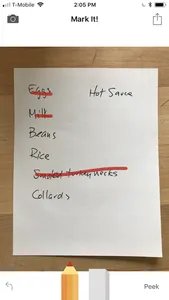 T-Mobile 2:05 PM
Mark It!
Eggs Hot Sauce
Milk
Beans
Rice
Smoked turkey necks
Collards
Peek